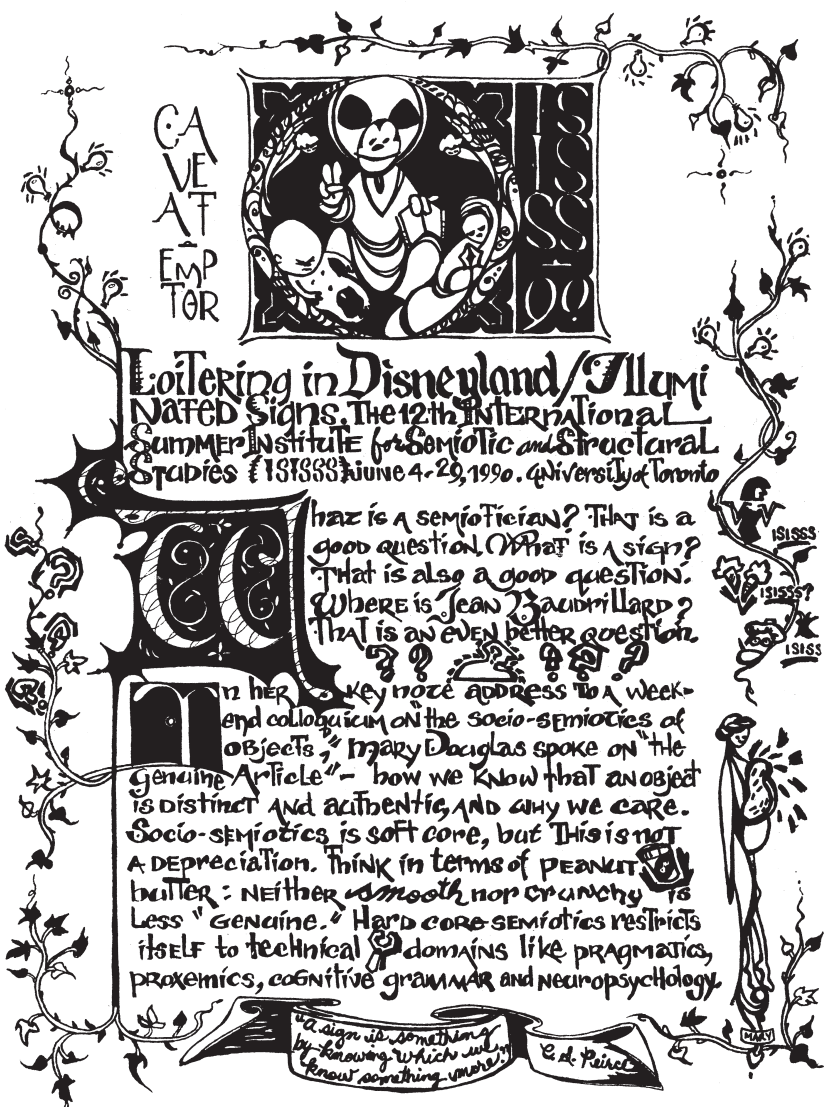 CA
VE
AT
EMP
TOR
IS
IS
SS
90
Loitering in Disneyland/Illumi
nated Signs. The 12th International
Summer Institute for Semiotic and Structural
Studies (ISISSS) June 4-29, 1990. University of Toronto
What is a semiotician? That is a
good question. What is a sign?
That is also a good question.
Where is Jean Baudrillard?
That is an even better question.
? ? ? ? ?
ISISSS
ISISSS?
ISISS
In her key note address to a week-
end colloquium on "the socio-semiotics of
objects," Mary Douglas spoke on "the
Genuine Article" - how we know that an object
is distinct and authentic, and why we care.
Socio-semiotics is soft core, but this is not
a depreciation. Think in terms of peanut
butter: neither smooth nor crunchy is
less "genuine." Hard core semiotics restricts
itself to technical domains like pragmatics,
proxemics, cognitive grammar and neuropsychology.
MARY
"a sign is something
by knowing which we
know something more."
C. S. Peirce